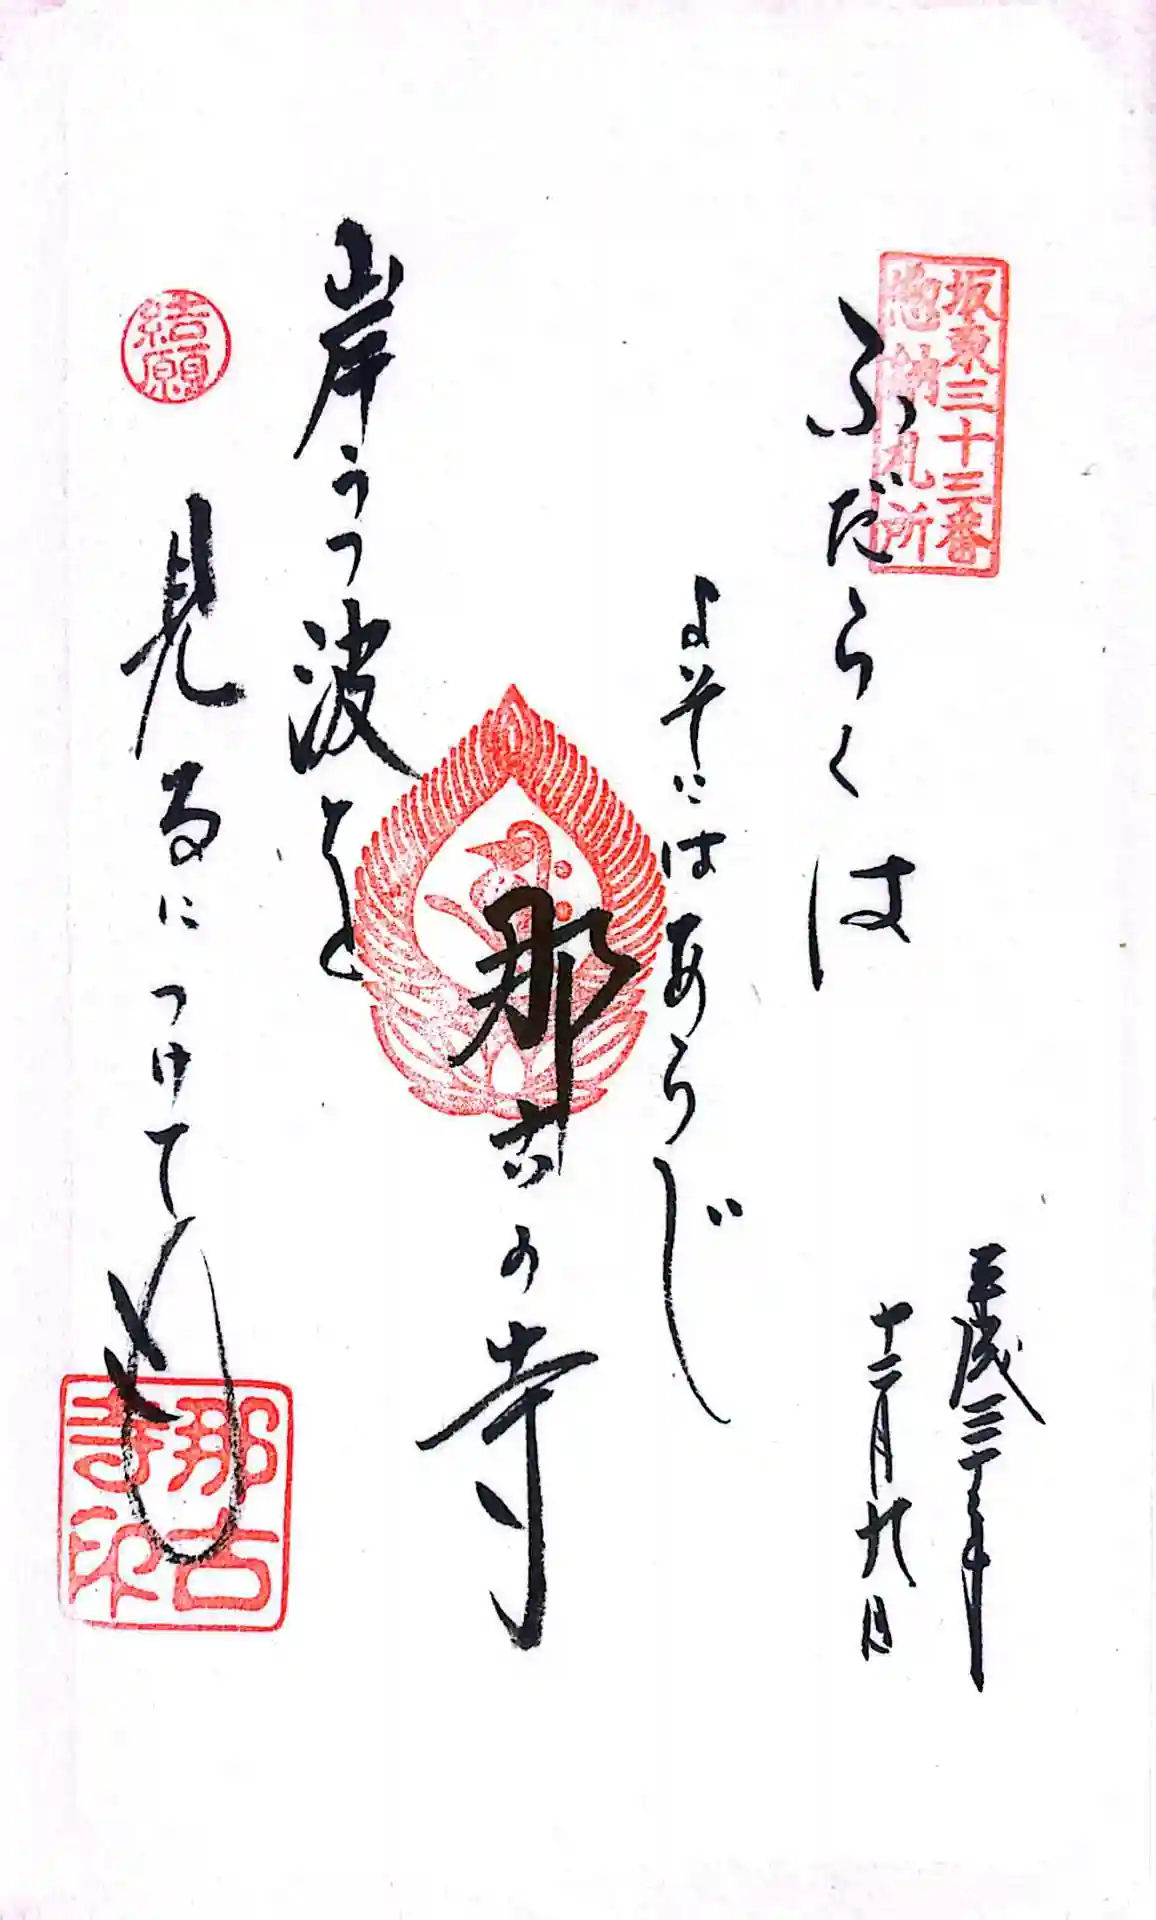 坂東三十三番
惣納札所
平成三十年
十二月九日
ふだらくは
よそにはあらじ
那古の寺
岸うつ波を
見るにつけても
結願
那古
寺印